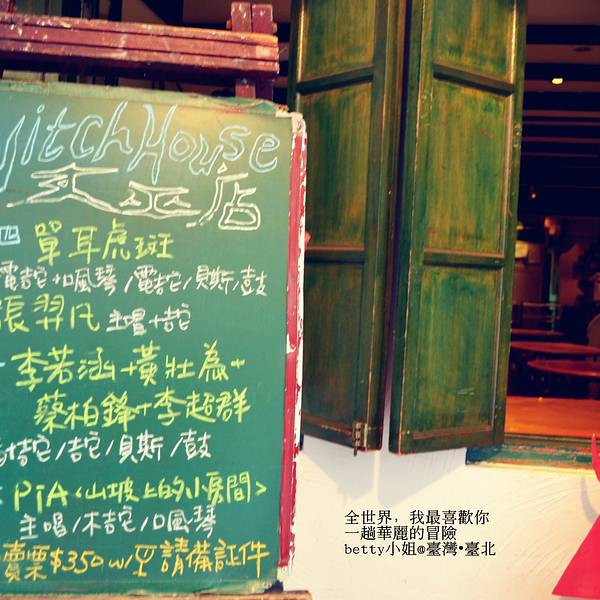 Witch House
女巫店
四 單耳虎斑
電吉它+口風琴/電吉它/貝斯/鼓
張羿凡 主唱+吉它
李若涵+黃壯為+
蔡柏鋒+李超群
吉它/吉它/貝斯/鼓
PiA<山坡上的小房間>
主唱/木吉它/口風琴
賣票$350 w/ 請備証件
全世界，我最喜歡你
一趟華麗的冒險
betty小姐@臺灣•臺北